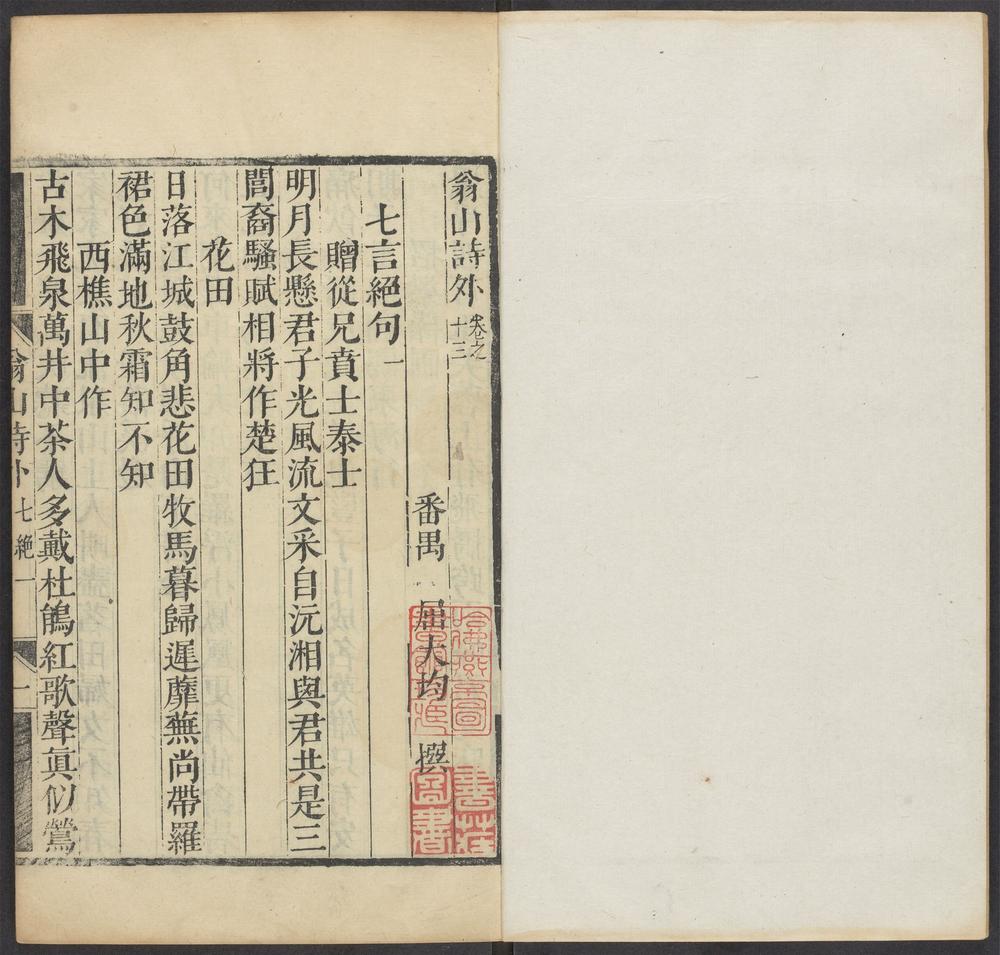 翁山詩外卷之十三
番禺 屈大均 撰
七言絕句一
贈從兄賁士泰士
明月長懸君子光風流文采自沅湘與君共是三
閭裔騷賦相將作楚狂
花田
日落江城鼓角悲花田牧馬暮歸遲蘼蕪尚帶羅
裙色滿地秋霜知不知
西樵山中作
古木飛泉萬井中茶人多戴杜鵑紅歌聲真似鶯
翁山詩外 七絕一 一